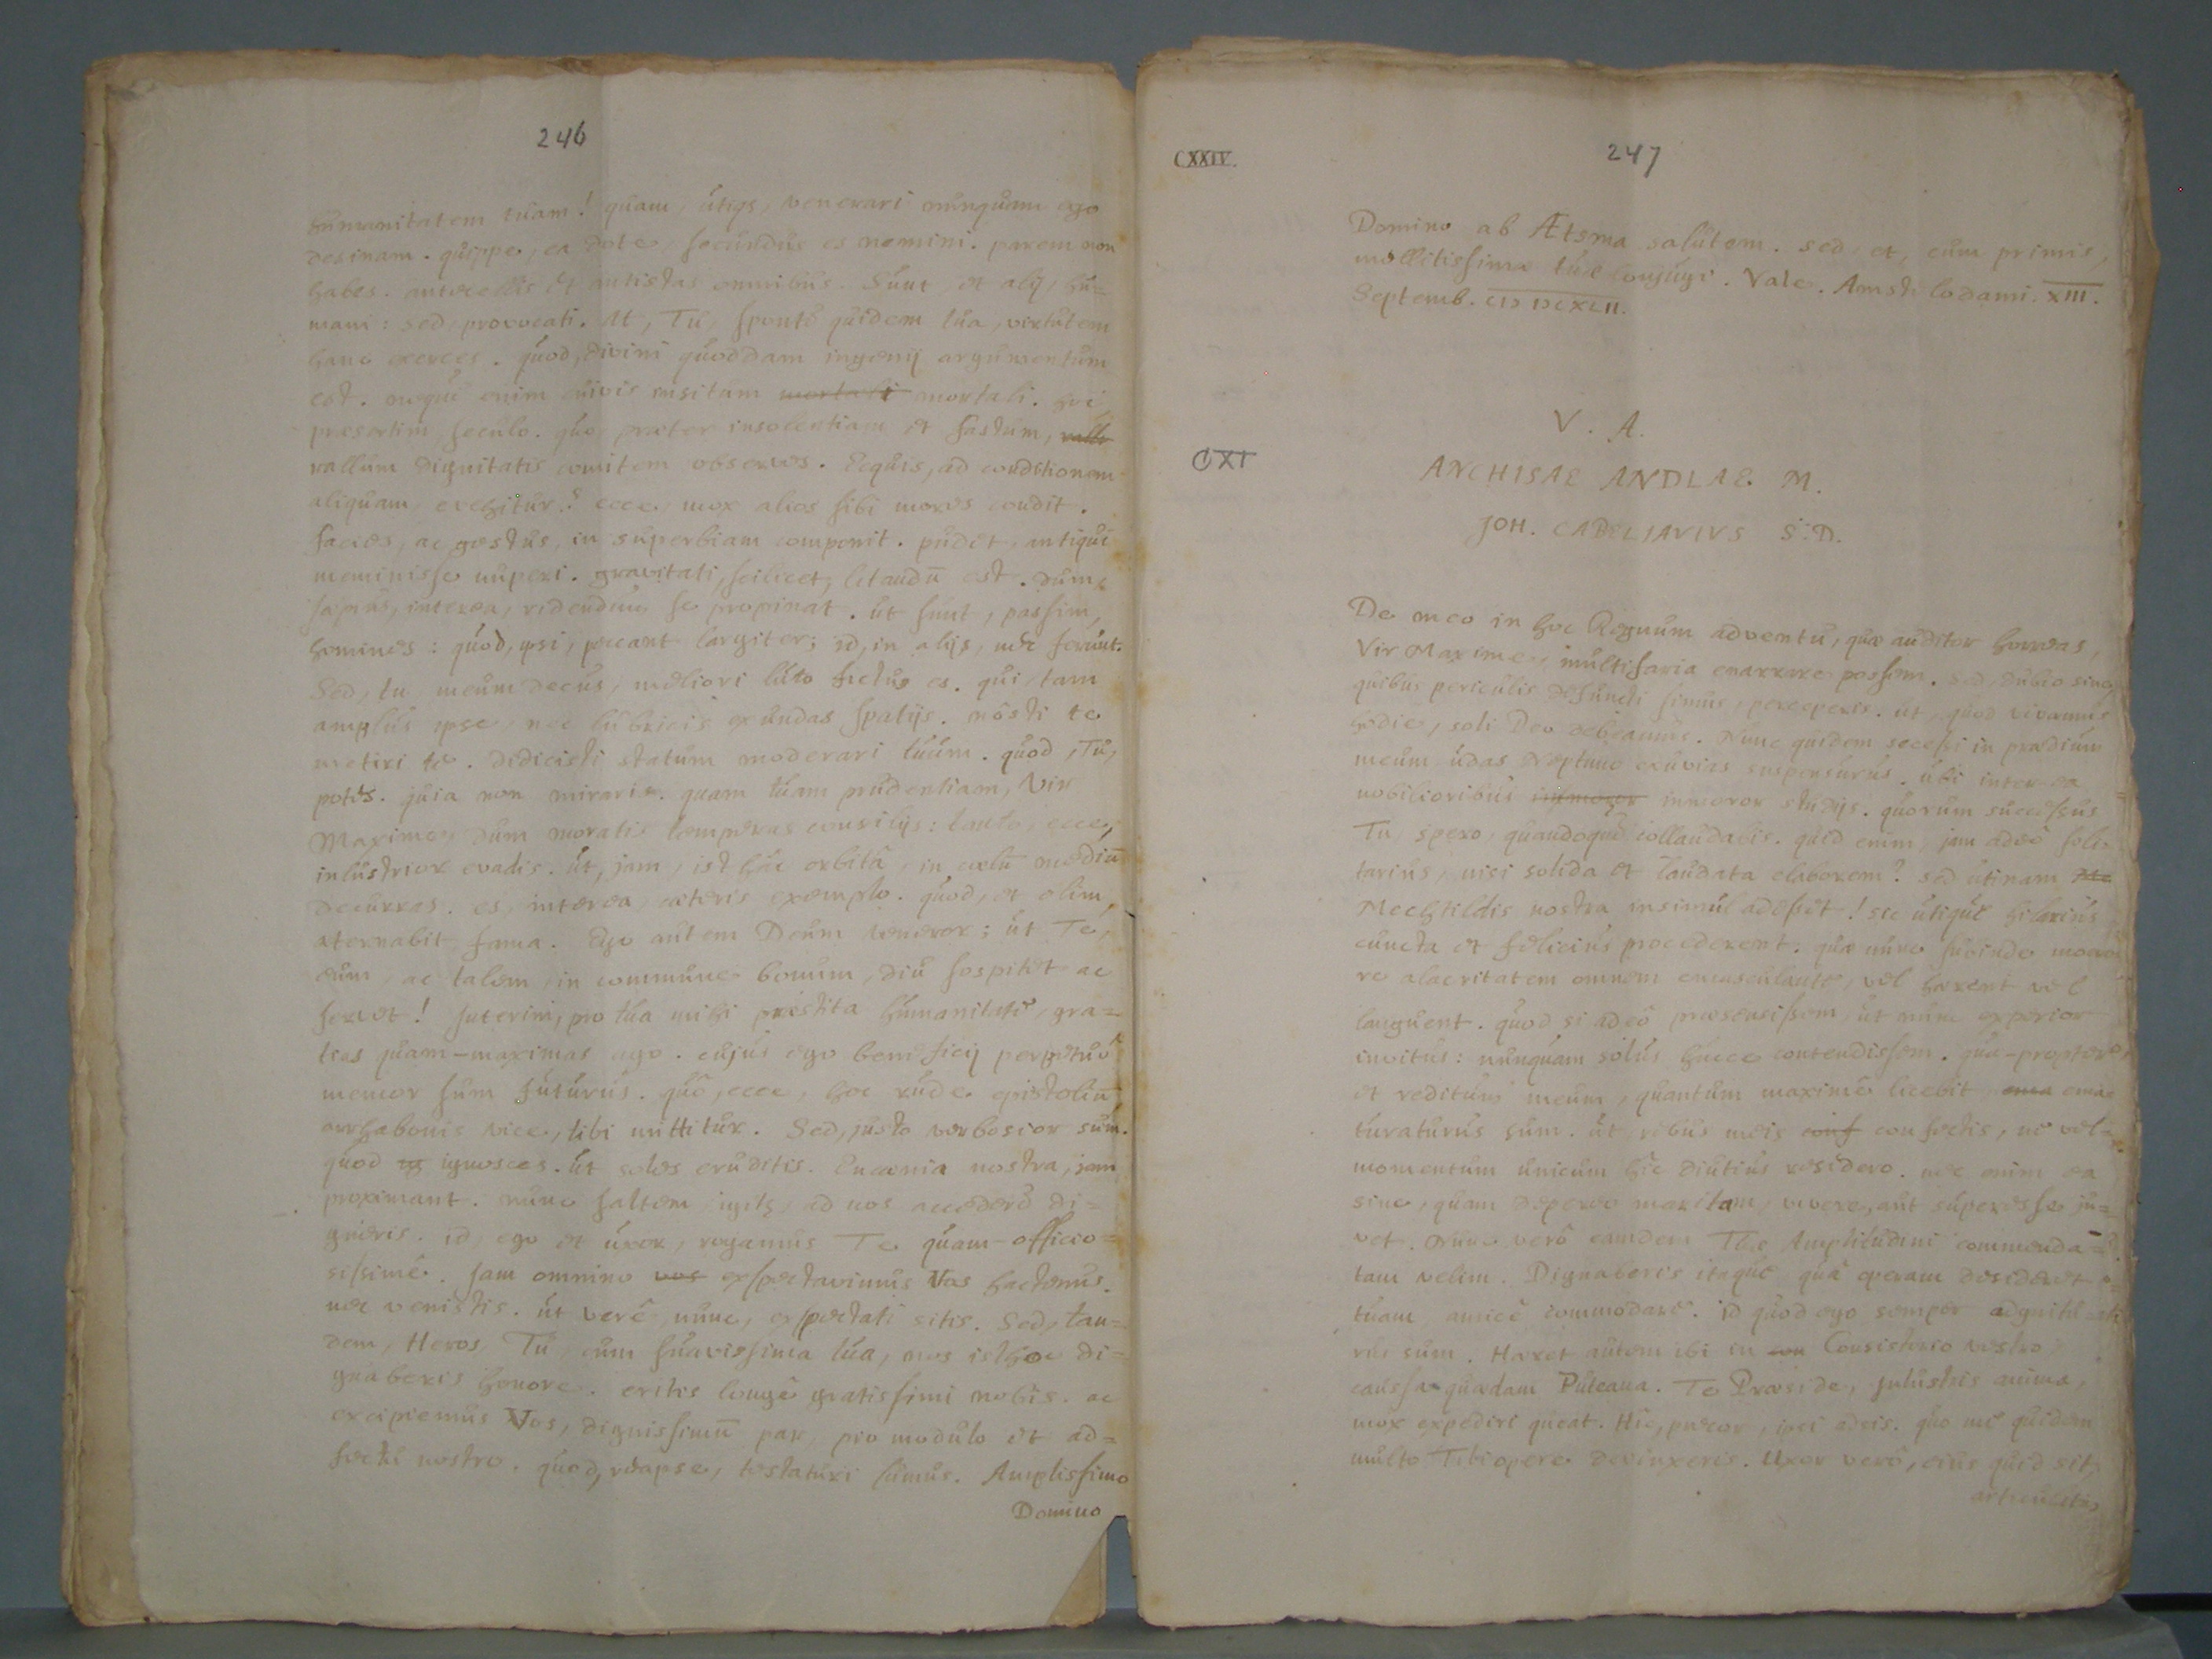 246
humanitatem tuam! quam, utiqs, venerari nunquam ego
desinam. quippe, ea dote, secundus es nemini. parem non
habes. antecellis et antistas omnibus. Sunt et alij, hu=
mani: sed, provocati. At, Tu, sponte quidem tua, virtutem
hanc exerces. quod, divini quoddam ingenij argumentum
est. neque enim cuivis insitum mortali mortali. hoc
praesertim seculo. quo, praeter insolentiam et fastum,
nullum dignitatis comitem observes. Ecquis, ad conditionem
aliquam, evehitur? ecce, mox alios sibi mores condit.
facies, ac gestus, in superbiam componit. pudet, antiqui
meminisse nuperi. gravitati, scilicet, litandū est. dum,
interea, ridendum se propinat. ut sunt, passim,
homines: quod, ipsi, peccant largiter; id, in alijs, nec ferunt.
Sed, tu, meum decus, meliori luto fictus es. qui, tam
amplus ipse, nec lubricis exundas spatijs. nosti te
metiri te. didicisti statum moderari tuum. quod, Tu,
potes. quia non miraris. quam tuam prudentiam, Vir
Maxime, dum moratis temperas consilijs: tanto, ecce,
inlustrior evadis. ut, jam, isthâc orbitâ, in coelū mediū
decurras. es, interea, caeteris exemplo. quod, et olim,
aeternabit fama. Ego autem Deum veneror; ut Te,
eum, ac talem, in commune bonum, diu sospitet ac
servet! Interim, pro tua mihi praestita humanitate, gra=
tias quam-maximas ago. cujus ego beneficij perpetuo
memor sum futurus. quô, ecce, hoc rude epistoliū
arrhabonis vice, tibi mittitur. Sed, justo verbosior sum.
quod ig ignosces. ut soles eruditis. Encaenia nostra, jam
proximant. nunc saltem, igitr, ad nos accedere di=
gneris. id, ego et uxor, rogamus Te quam-officio=
sissimê. Jam omnino vos exspectavimus Vos hactenus.
nec venistis. ut verê, nunc, exspectati sitis. Sed, tan=
dem, Heros, Tu, cum suavissima tua, nos isthoc di=
gnaberis honore. eritis longê gratissimi nobis. ac
excipiemus Vos, dignissimū par, pro modulo et ad=
fectu nostro. quod, reapse, testaturi sumus. Amplissimo
Domino
CXXIV.
247
Domino ab Ætsma salutem. sed et, cum primis,
mollitissimae tuae conjugi. Vale. Amstelodami. XIII.
Septemb. CIƆ IƆCXLII.
V. A.
CXI
ANCHISAE ANDLAE. M.
JOH. CABELJAVIVS S. D.
De meo in hoc Regnum adventu, quae auditor horreas,
Vir Maxime, multifaria enarrare possem. sed, dubio sine,
quibus periculis defuncti simus, perceperis. ut, quod vivamus
hodie, soli Deo debeamus. Nunc quidem secessi in praedium
meum udas Neptuno exuvias suspensurus. ubi interea
nobilioribus immoror inmoror studijs. quorum successus
Tu, spero, quandoque collaudabis. quid enim, jam adeô soli=
tarius, nisi solida et laudata elaborem? sed utinam Me
Mechtildis nostra insimul adesset! sic utique hilarius
cuncta et felicius procederent. quae nunc subinde moero=
re alacritatem omnem emasculante, vel haerent vel
languent. quod si adeô praesensissem, ut nunc experior
invitus: nunquam solus hucce contendissem. qua-propter
et reditum meum, quantum maximê licebit, ema ema=
turaturus sum. ut, rebus meis conf confectis, ne vel
momentum unicum hic diutius residero. nec enim ea
sine, quam depereo maritam, vivere, aut superesse ju=
vet. Nunc verô eamdem Tuae Amplitudini commenda=
tam velim. Dignaberis itaque, quâ operam desideret
tuam, amicê commodare. id quod ego semper adgnitu=
rus sum. Haeret autem ibi in con Consistorio vestro
caussa quaedam Puteana. Te Praeside, inlustris anima,
mox expediri queat. Hic, precor, ipsi adsis. quo me quidem
multo Tibi opere devinxeris. Uxor verô, ejus quid sit,
articulatê